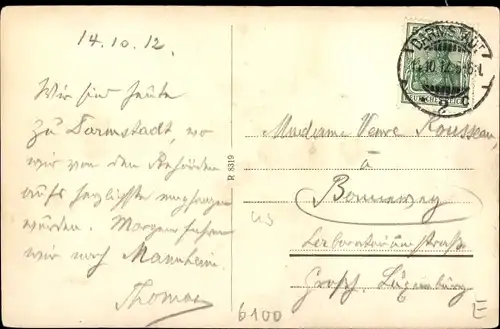 14.10.12.
Wir sind heute
zu Darmstadt, wo
wir von den Behörden
aufs herzlichste empfangen
wurden. Morgen fahren
wir nach Mannheim.
Thomas
R 8319
DARMSTADT
14.10.12.
C
Madame Veuve Rousseau,
à
Bonneweg
Großh. Luxemburg
6100
E